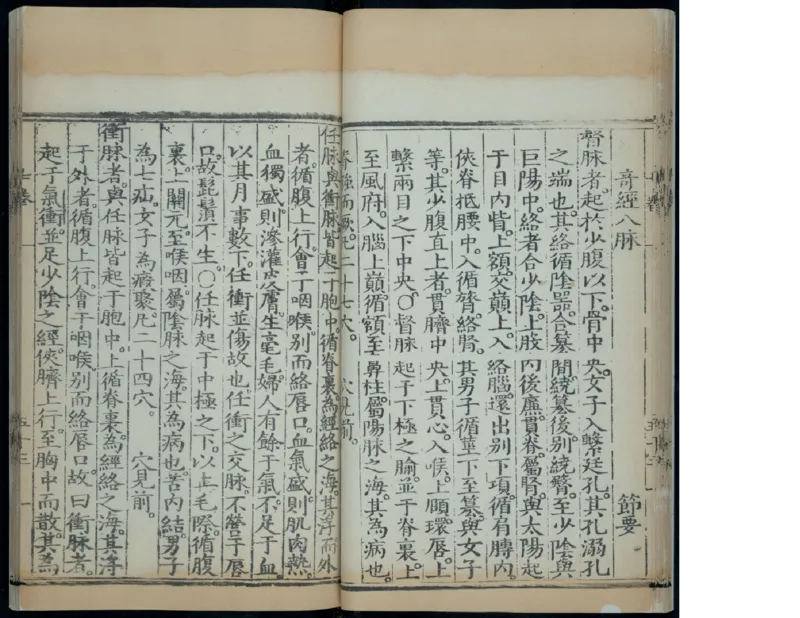 奇經八脉 節要
督脉者。起於少腹以下。骨中央。女子入繫廷孔。其孔溺孔
之端也。其絡循陰器。合簒間。繞簒後。別繞臀。至少陰。與
巨陽中。絡者合少陰上股內後廉。貫脊。屬腎。與太陽起
于目內眥。上額。交巓上。入絡腦。還出別下項。循肩膊內。
俠脊抵腰中。入循膂。絡腎。其男子循莖下至簒。與女子
等。其少腹直上者。貫臍中央。上貫心。入喉。上頤。環唇。上
繫兩目之下中央。〇督脉起于下極之腧。並于脊裏。上
至風府。入腦上巓。循額。至鼻柱。屬陽脉之海。其為病也。
脊強而厥。凡二十七穴。 穴見前。
任脉與衝脉皆起于胞中。循脊裏。為經絡之海。其浮而外
者。循腹上行。會于咽喉。別而絡唇口。血氣盛。則肌肉熱。
血獨盛。則滲灌皮膚。生毫毛。婦人有餘于氣。不足于血。
以其月事數下。任衝並傷故也。任衝之交脉。不營乎唇
口。故髭鬚不生。〇任脉起于中極之下。以上毛際。循腹
裏。上關元。至喉咽。屬陰脉之海。其為病也。苦內結。男子
為七疝。女子為瘕聚。凡二十四穴。 穴見前。
衝脉者。與任脉皆起于胞中。上循脊裏。為經絡之海。其浮
于外者。循腹上行。會于咽喉。別而絡唇口。故曰衝脉者。
起于氣衝。並足少陰之經。俠臍上行。至胸中而散。其為